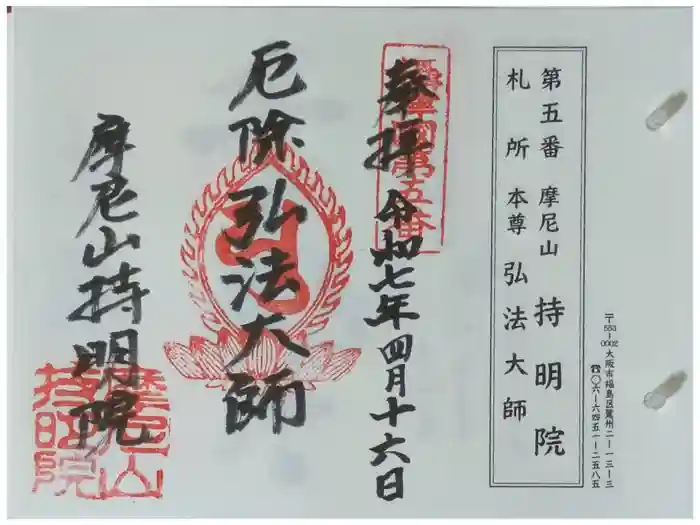 〒553-0002 大阪市福島区鷺州二-一三-三
☎〇六-六四五一-二五八五
第五番 摩尼山 持明院
札所本尊 弘法大師
奉拝 令和七年四月十六日
第五番
厄除 弘法大師
摩尼山持明院
摩尼山
持明院